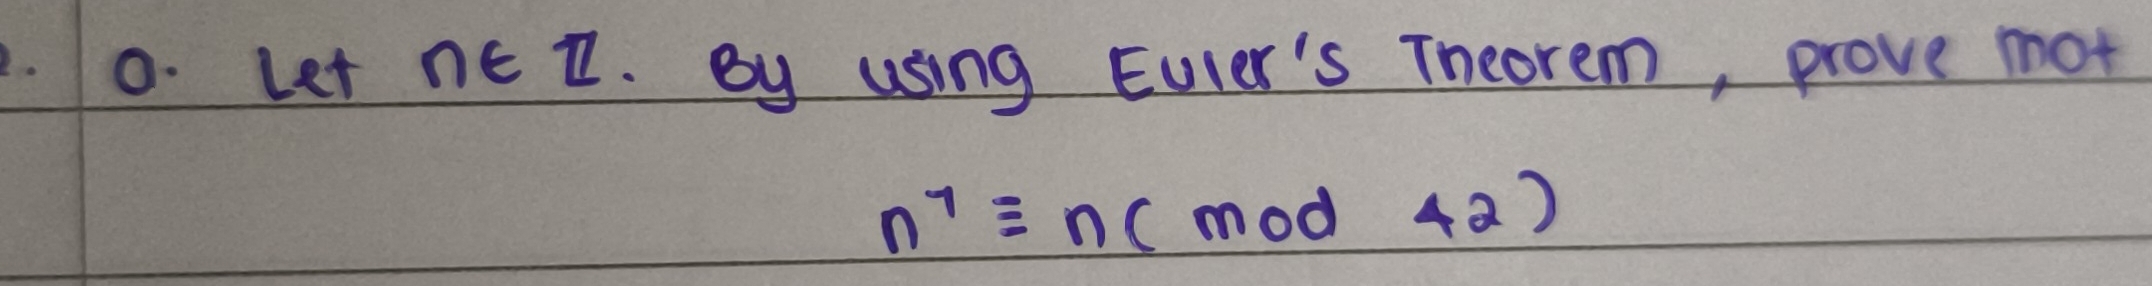 2. a. Let n ∈ ℤ. By using Euler's Theorem, prove that
n⁷ ≡ n ( mod 42 )